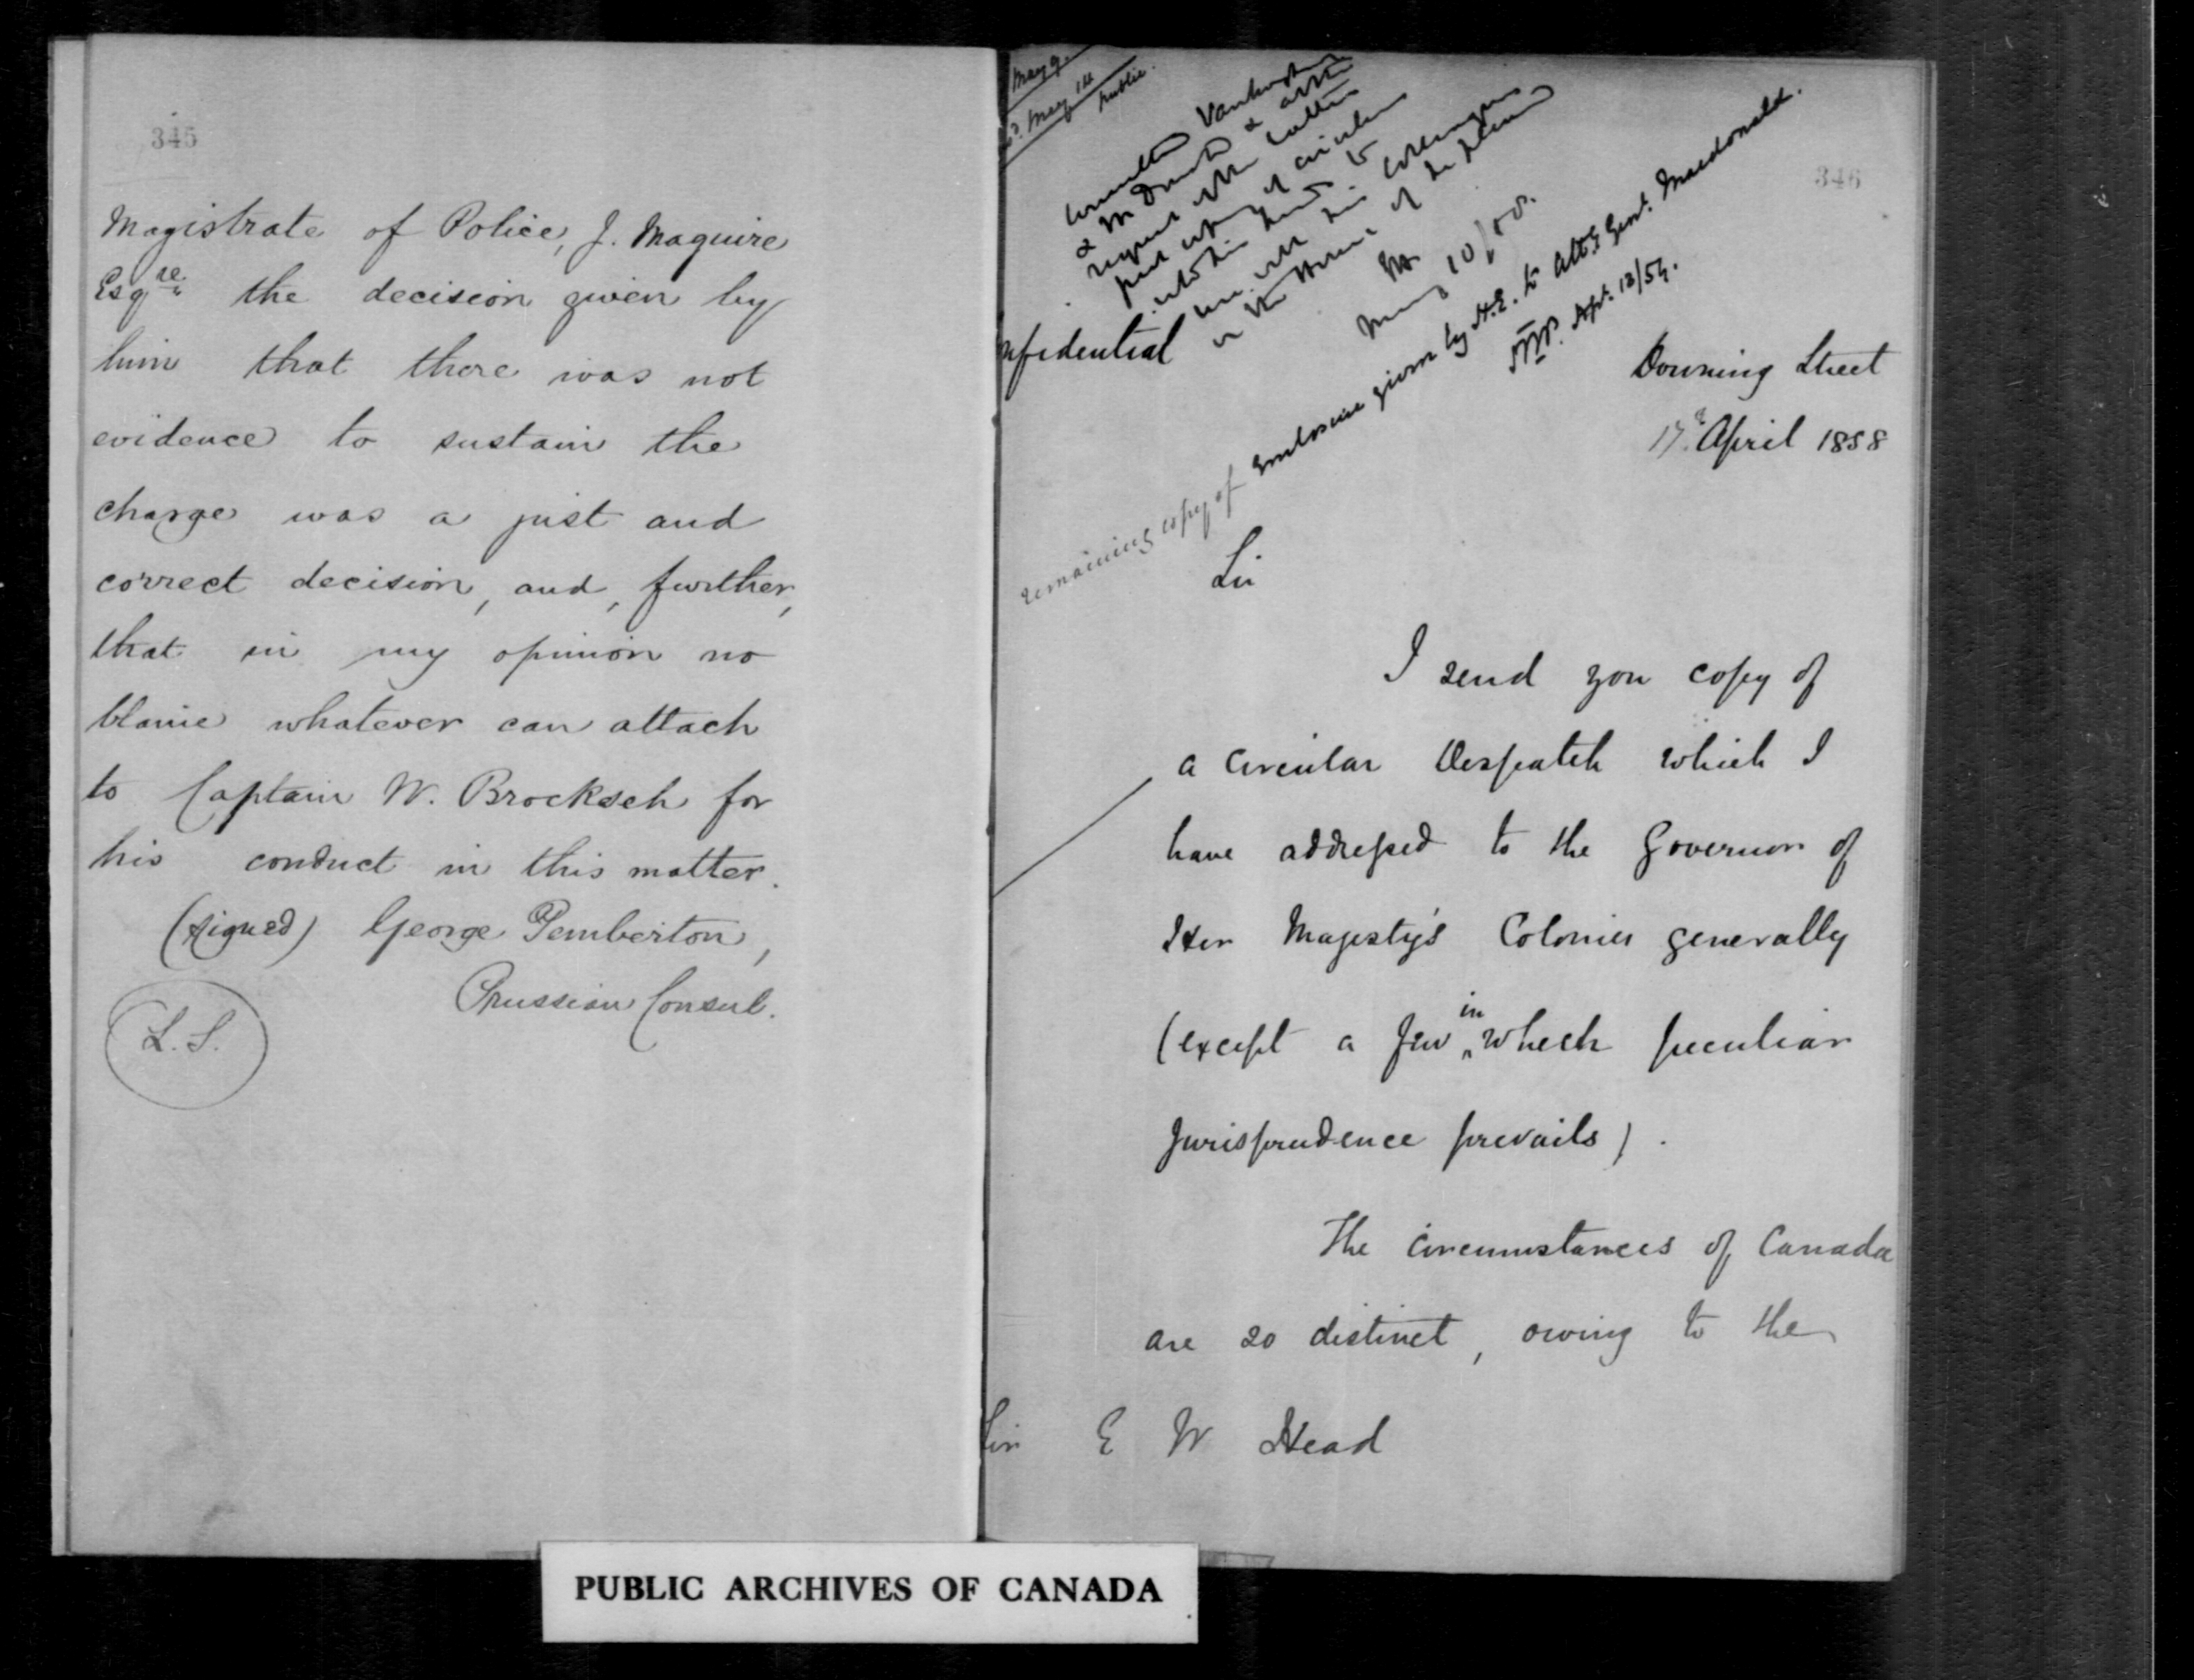 345
Magistrate of Police, J. Maguire
Esqre the decision given by
him that there was not
evidence to sustain the
charge was a just and
correct decision, and, further,
that in my opinion no
blame whatever can attach
to Captain W. Brocksch for
his conduct in this matter.
(signed) George Pemberton,
Prussian Consul.
L.S.
May 9.
May 14
Public.
346
May 10/58.
remaining copy of Enclosure given by H.E. to Atty Genl. Macdonald.
Apl. 13/59.
nfidential
Downing Street
17. April 1858
Sir
I send you copy of
a Circular Despatch which I
have addressed to the Governor of
Her Majesty's Colonies generally
(except a few in which peculiar
Jurisprudence prevails).
The Circumstances of Canada
are so distinct, owing to the
Sir E W Head
PUBLIC ARCHIVES OF CANADA